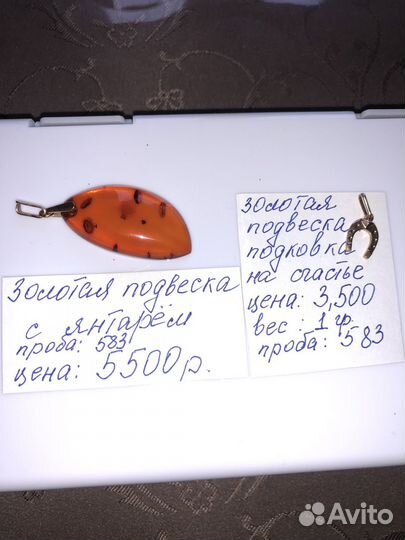 Золотая подвеска
с янтарём
проба: 583
цена: 5500р.
золотая
подвеска
подковка
на счастье
цена: 3,500
вес: 1 гр.
проба: 583
Avito